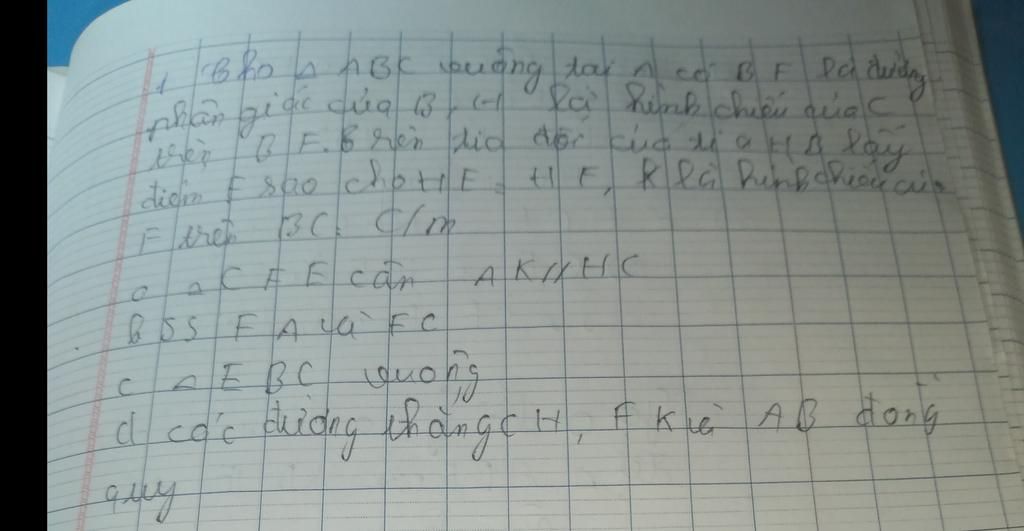 1, Cho △ ABC vuông tại A có BF là đường
phân giác của B, H là hình chiếu của C
trên BF. Trên tia đối của tia HB lấy
điểm E sao cho HE = HF, K là hình chiếu của
F trên BC. C/m
a △ CFE cân AK // HC
B SS FA và FC
c △ EBC vuông
d các đường thẳng CH, FK và AB đồng
quy